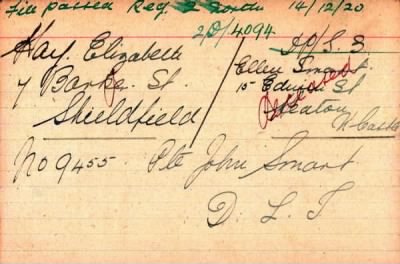 File passed Reg 2 North 14/12/20
2D/4094
Hay. Elizabeth
7 Barker St.
Shieldfield
D/L. S.
Ellen Smart
15 Edwin St
Heaton
N Castle
Deceased
No 9455 Pte John Smart
D. L. I